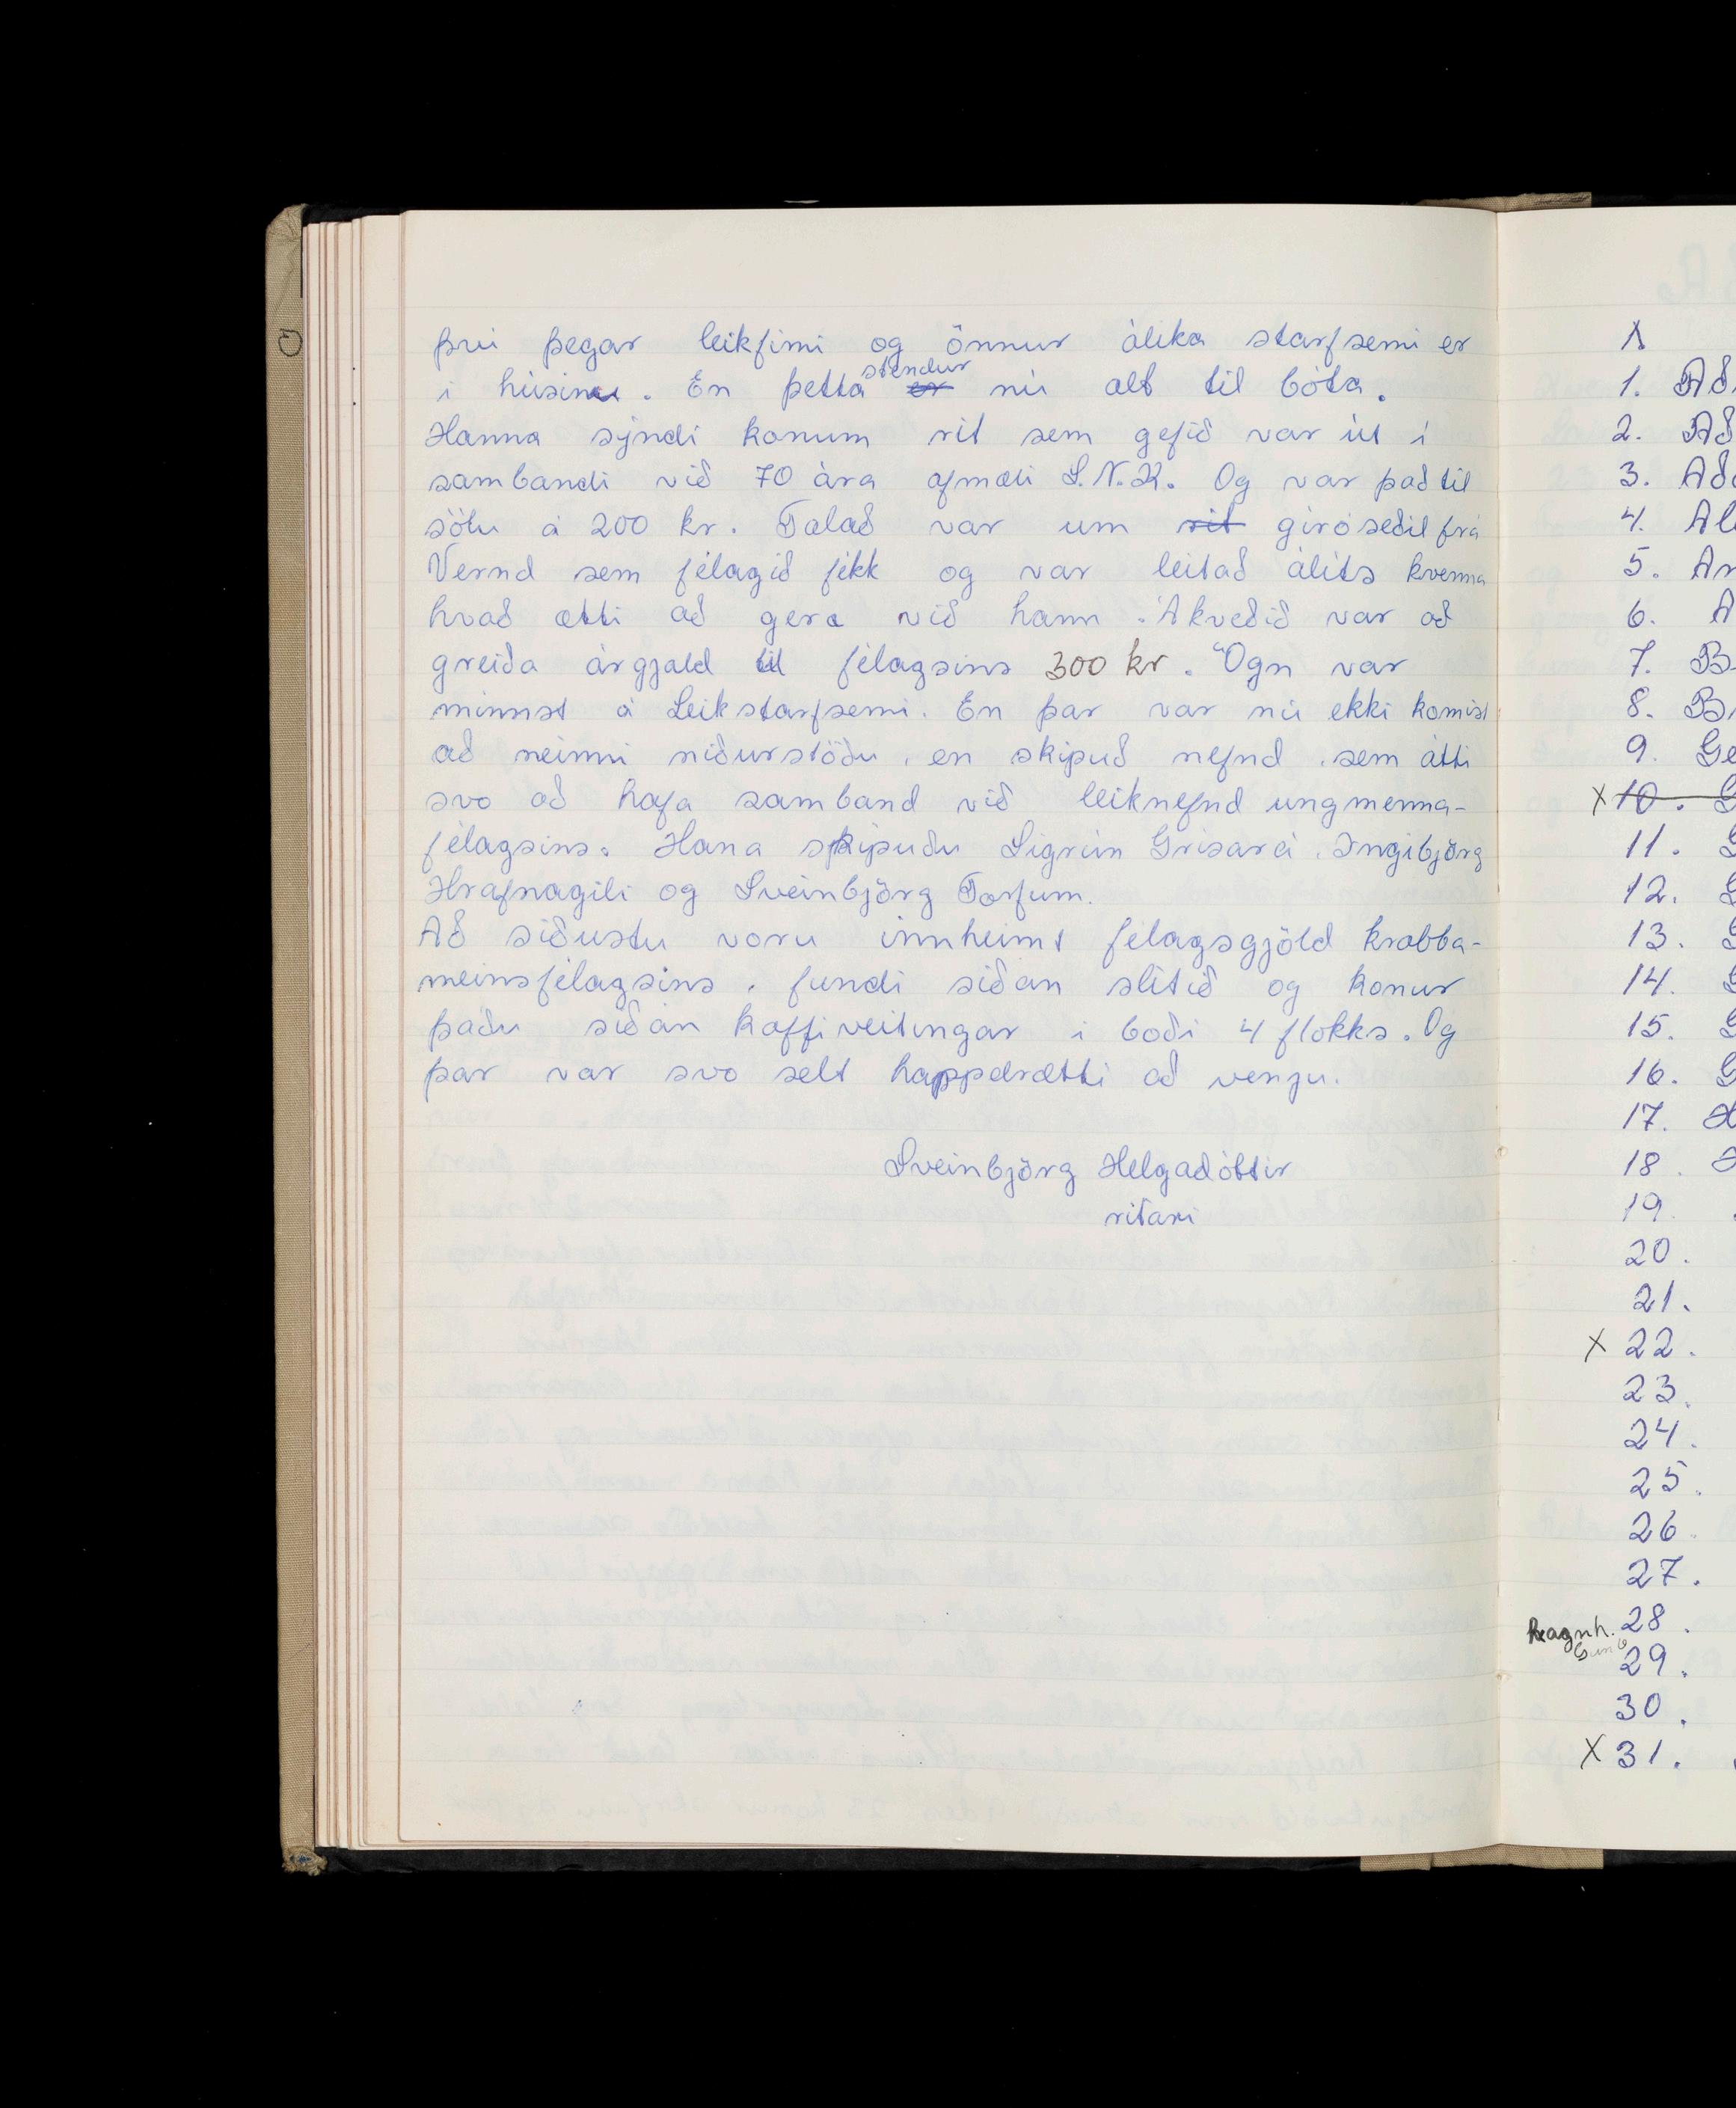 því þegar leikfimi og önnur álika starfsemi er
í húsinu. En þetta stendur nú alt til bóta.
Hanna sýndi konum rit sem gefið var út í
sambandi við 70 ára afmæli S.N.K. Og var það til
sölu á 200 kr. Talað var um rit giróseðil frá
Vernd sem félagið fékk og var leitað álits kvenna
hvað ætti að gera við hann. Ákveðið var að
greiða árgjald til félagsins 300 kr. Ögn var
minnst á Leikstarfsemi. En þar var nú ekki komist
að neinni niðurstöðu, en skipuð nefnd, sem átti
svo að hafa samband við leiknefnd ungmenna-
félagsins. Hana skipuðu Sigrún Grísará, Ingibjörg
Hrafnagili og Sveinbjörg Torfum.
Að síðustu voru innheimt félagsgjöld krabba-
meinsfélagsins, fundi síðan slitið og konur
þáðu síðan kaffiveitingar í boði 4 flokks. Og
þar var svo selt happdrætti að vengu.
Sveinbjörg Helgadóttir
ritari
1. Að
2. Að
3. Aða
4. Al
5. An
6. A
7. B
8. B
9. Ge
X 10. G
11. G
12. G
13. G
14. G
15. G
16. G
17. H
18. H
19.
20.
21.
X 22.
23.
24.
25.
26.
27.
Ragnh. 28.
29.
30.
X 31.